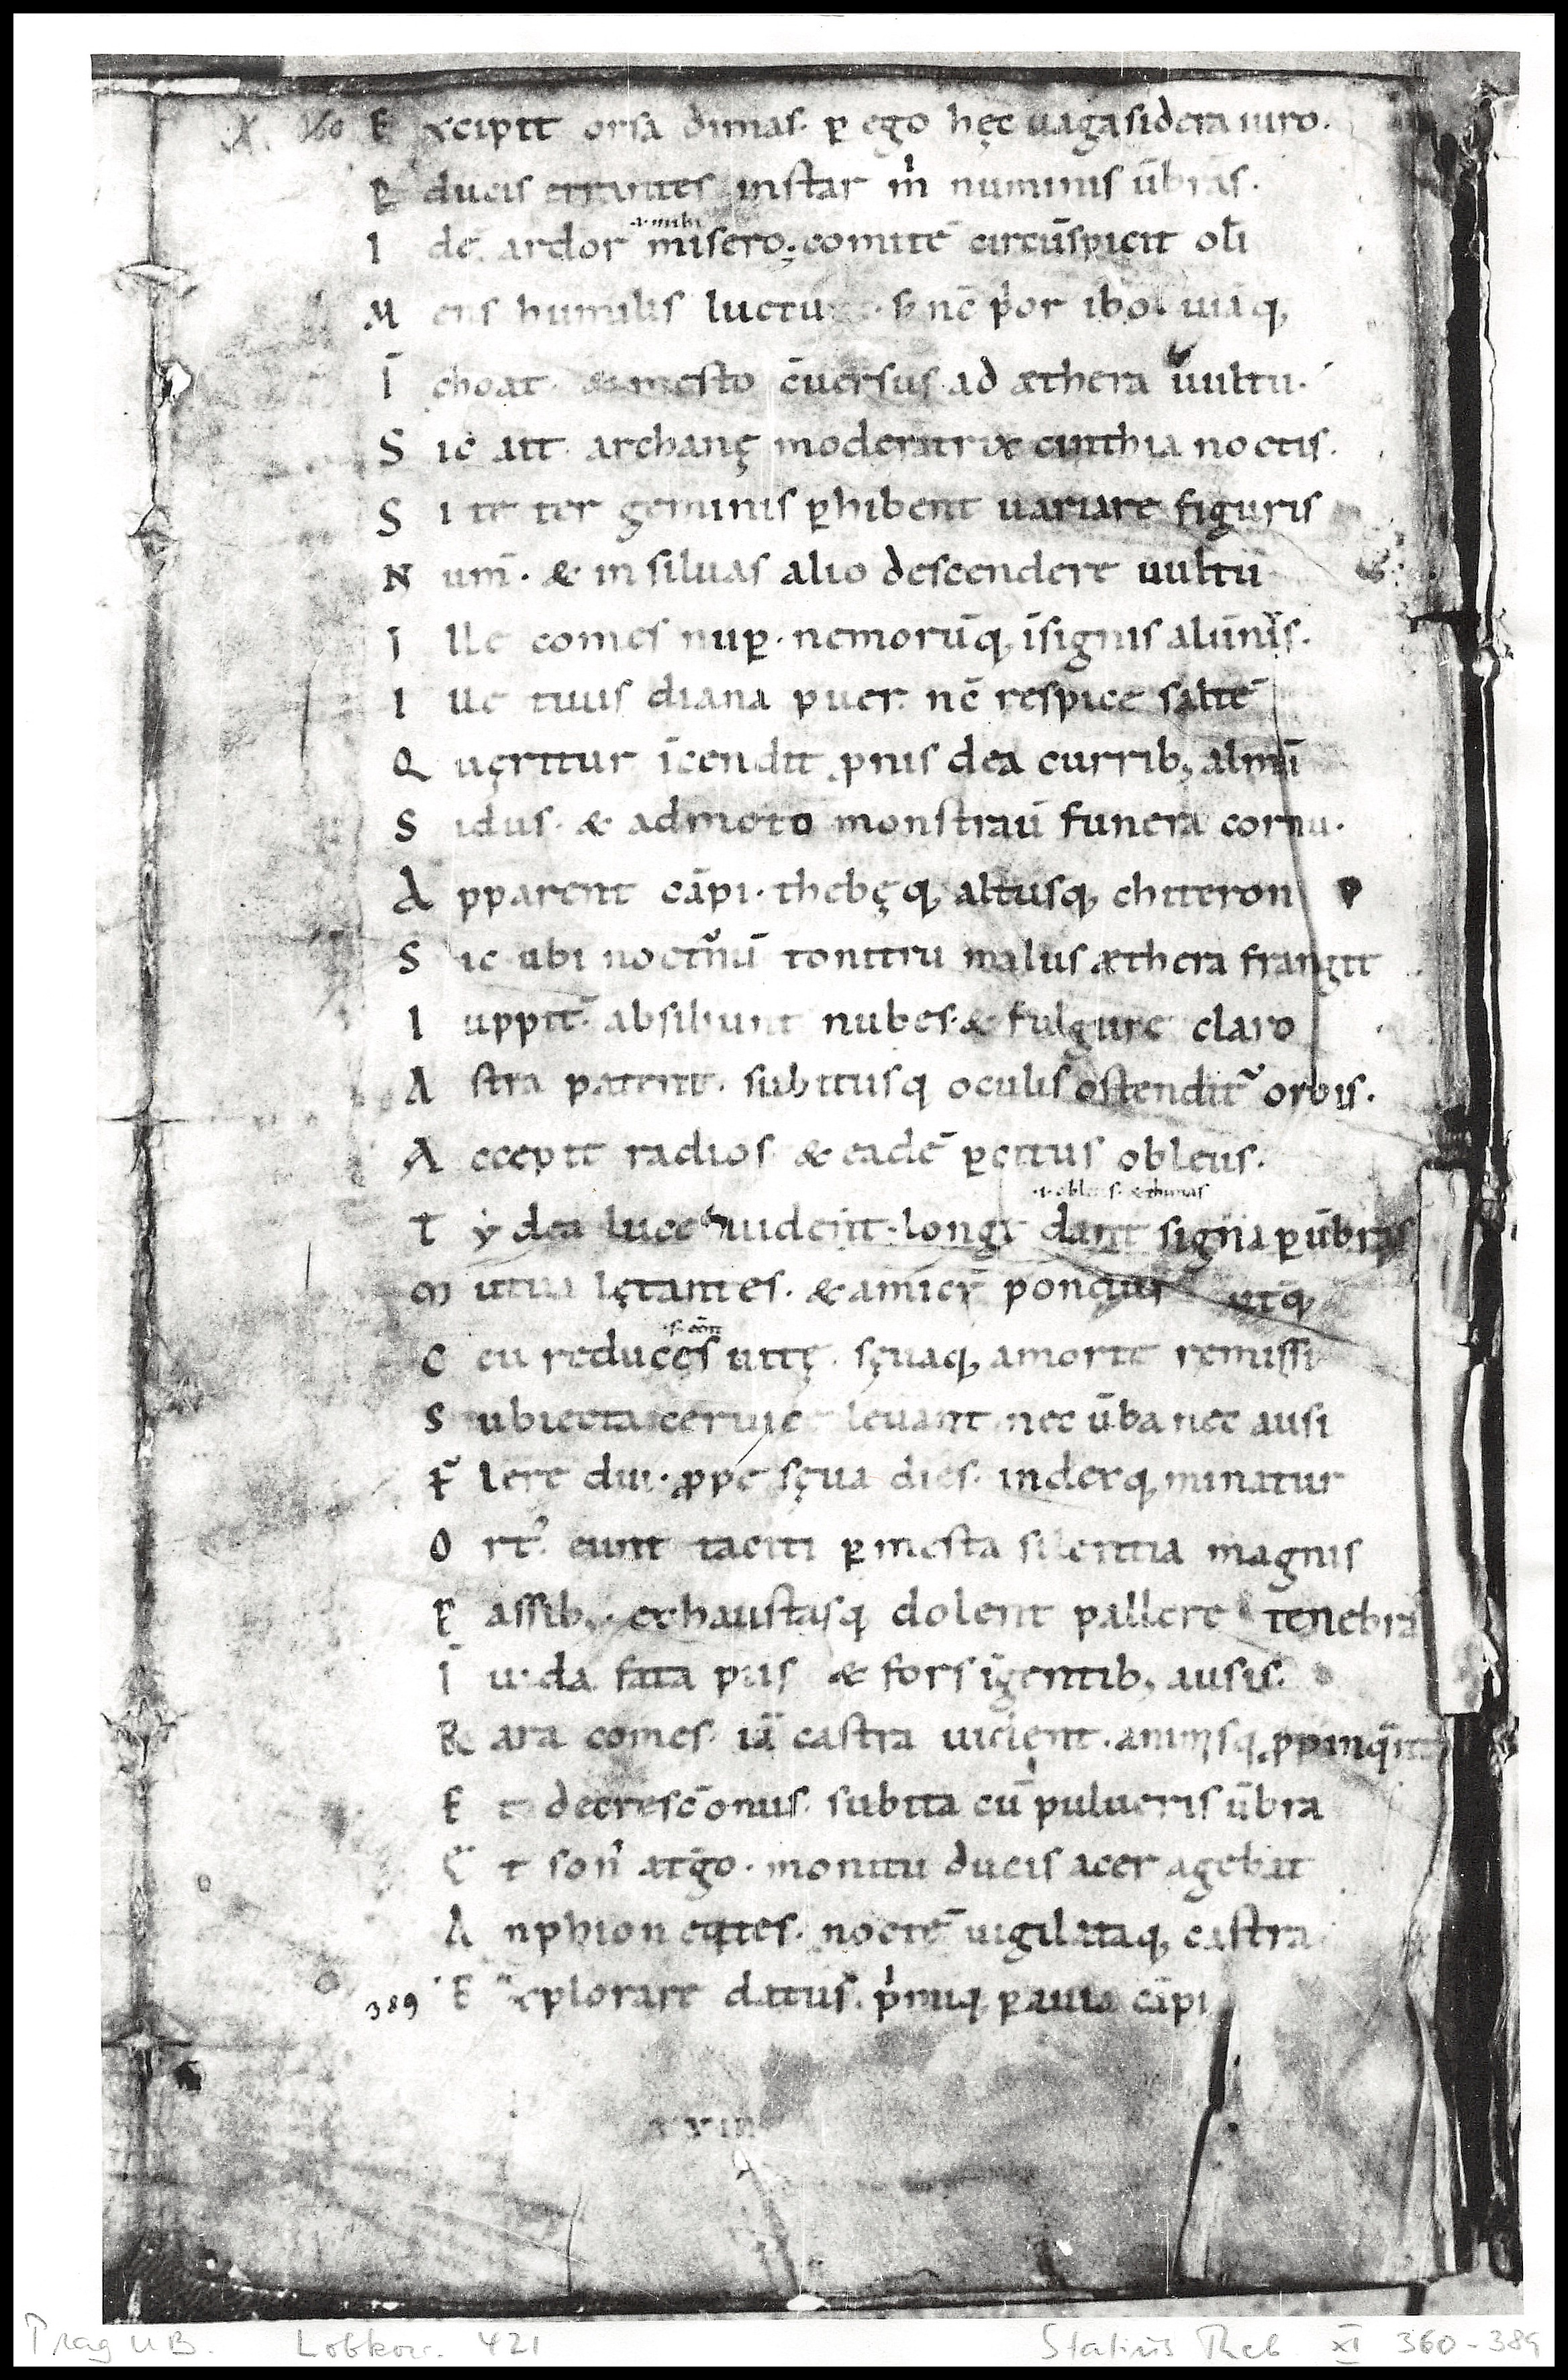 X. 360 E xcipit orsa dimas. ꝑ ego hęc uaga sidera iuro.
P ducis errantes instar m̊ numinis ūbras.
.i. mihi
I dē ardor misero. comitē circūspicit oli
M ens humilis luctu. s; nc̄ p̍or ibo. uiāq;
Ī choat. & mesto c̄uersus ad æthera uultu.
S ic ait. archanę moderatrix cinthia noctis.
S i te ter geminis ꝑhibent uariare figuris
N um̄. & in siluas alio descendere uultū
I lle comes nuꝑ. nemorūq; īsignis alūnis.
I lle tuus diana puer. nc̄ respice saltē
Q uęritur īcendit pnis dea currib; almū
S idus. & admoto monstrau̅ funera cornu.
A pparent cāpi. thebęq; altusq; chiteron
S ic ubi nocturnū tonitru malus æthera frangit
I uppit̄. absiliunt nubes. & fulgure claro
A stra patent. subitusq; oculis ostendit᷑ orbis.
A ccepit radios & eadē ꝑcitus obleus.
.i. obleus. & thimas
T ydea luce uident. longe dant signa ꝑ ūbras
M utua lętantes. & amicū pondus utq̄;
.s. cōit
C eu reduces uitę. sęuaq; a morte remissi
S ubiecta ceruice leuant nec ūba nec ausi
F lere diu. ꝓpe sęua dies. indexq; minatur
O rt᷒. eunt taciti ꝑ mesta silentia magnis
P assib;. exhaustasq; dolent pallere tenebras
Ī uida fata piis & fors īgentib; ausis.
R ara comes. iā castra uident. animisq; ꝓpinquāt
E t decresc̄ onus. subita cū pulueris ūbra
E t son᷒ at᷑go. monitu ducis acer agebat
A nphion eques. noctē uigilataq; castra
389 E xplorare datus. p̍muq; ꝑ auia cāpi
xxiii
Prag UB. Lobkow. 421 Statius Theb XI 360-389